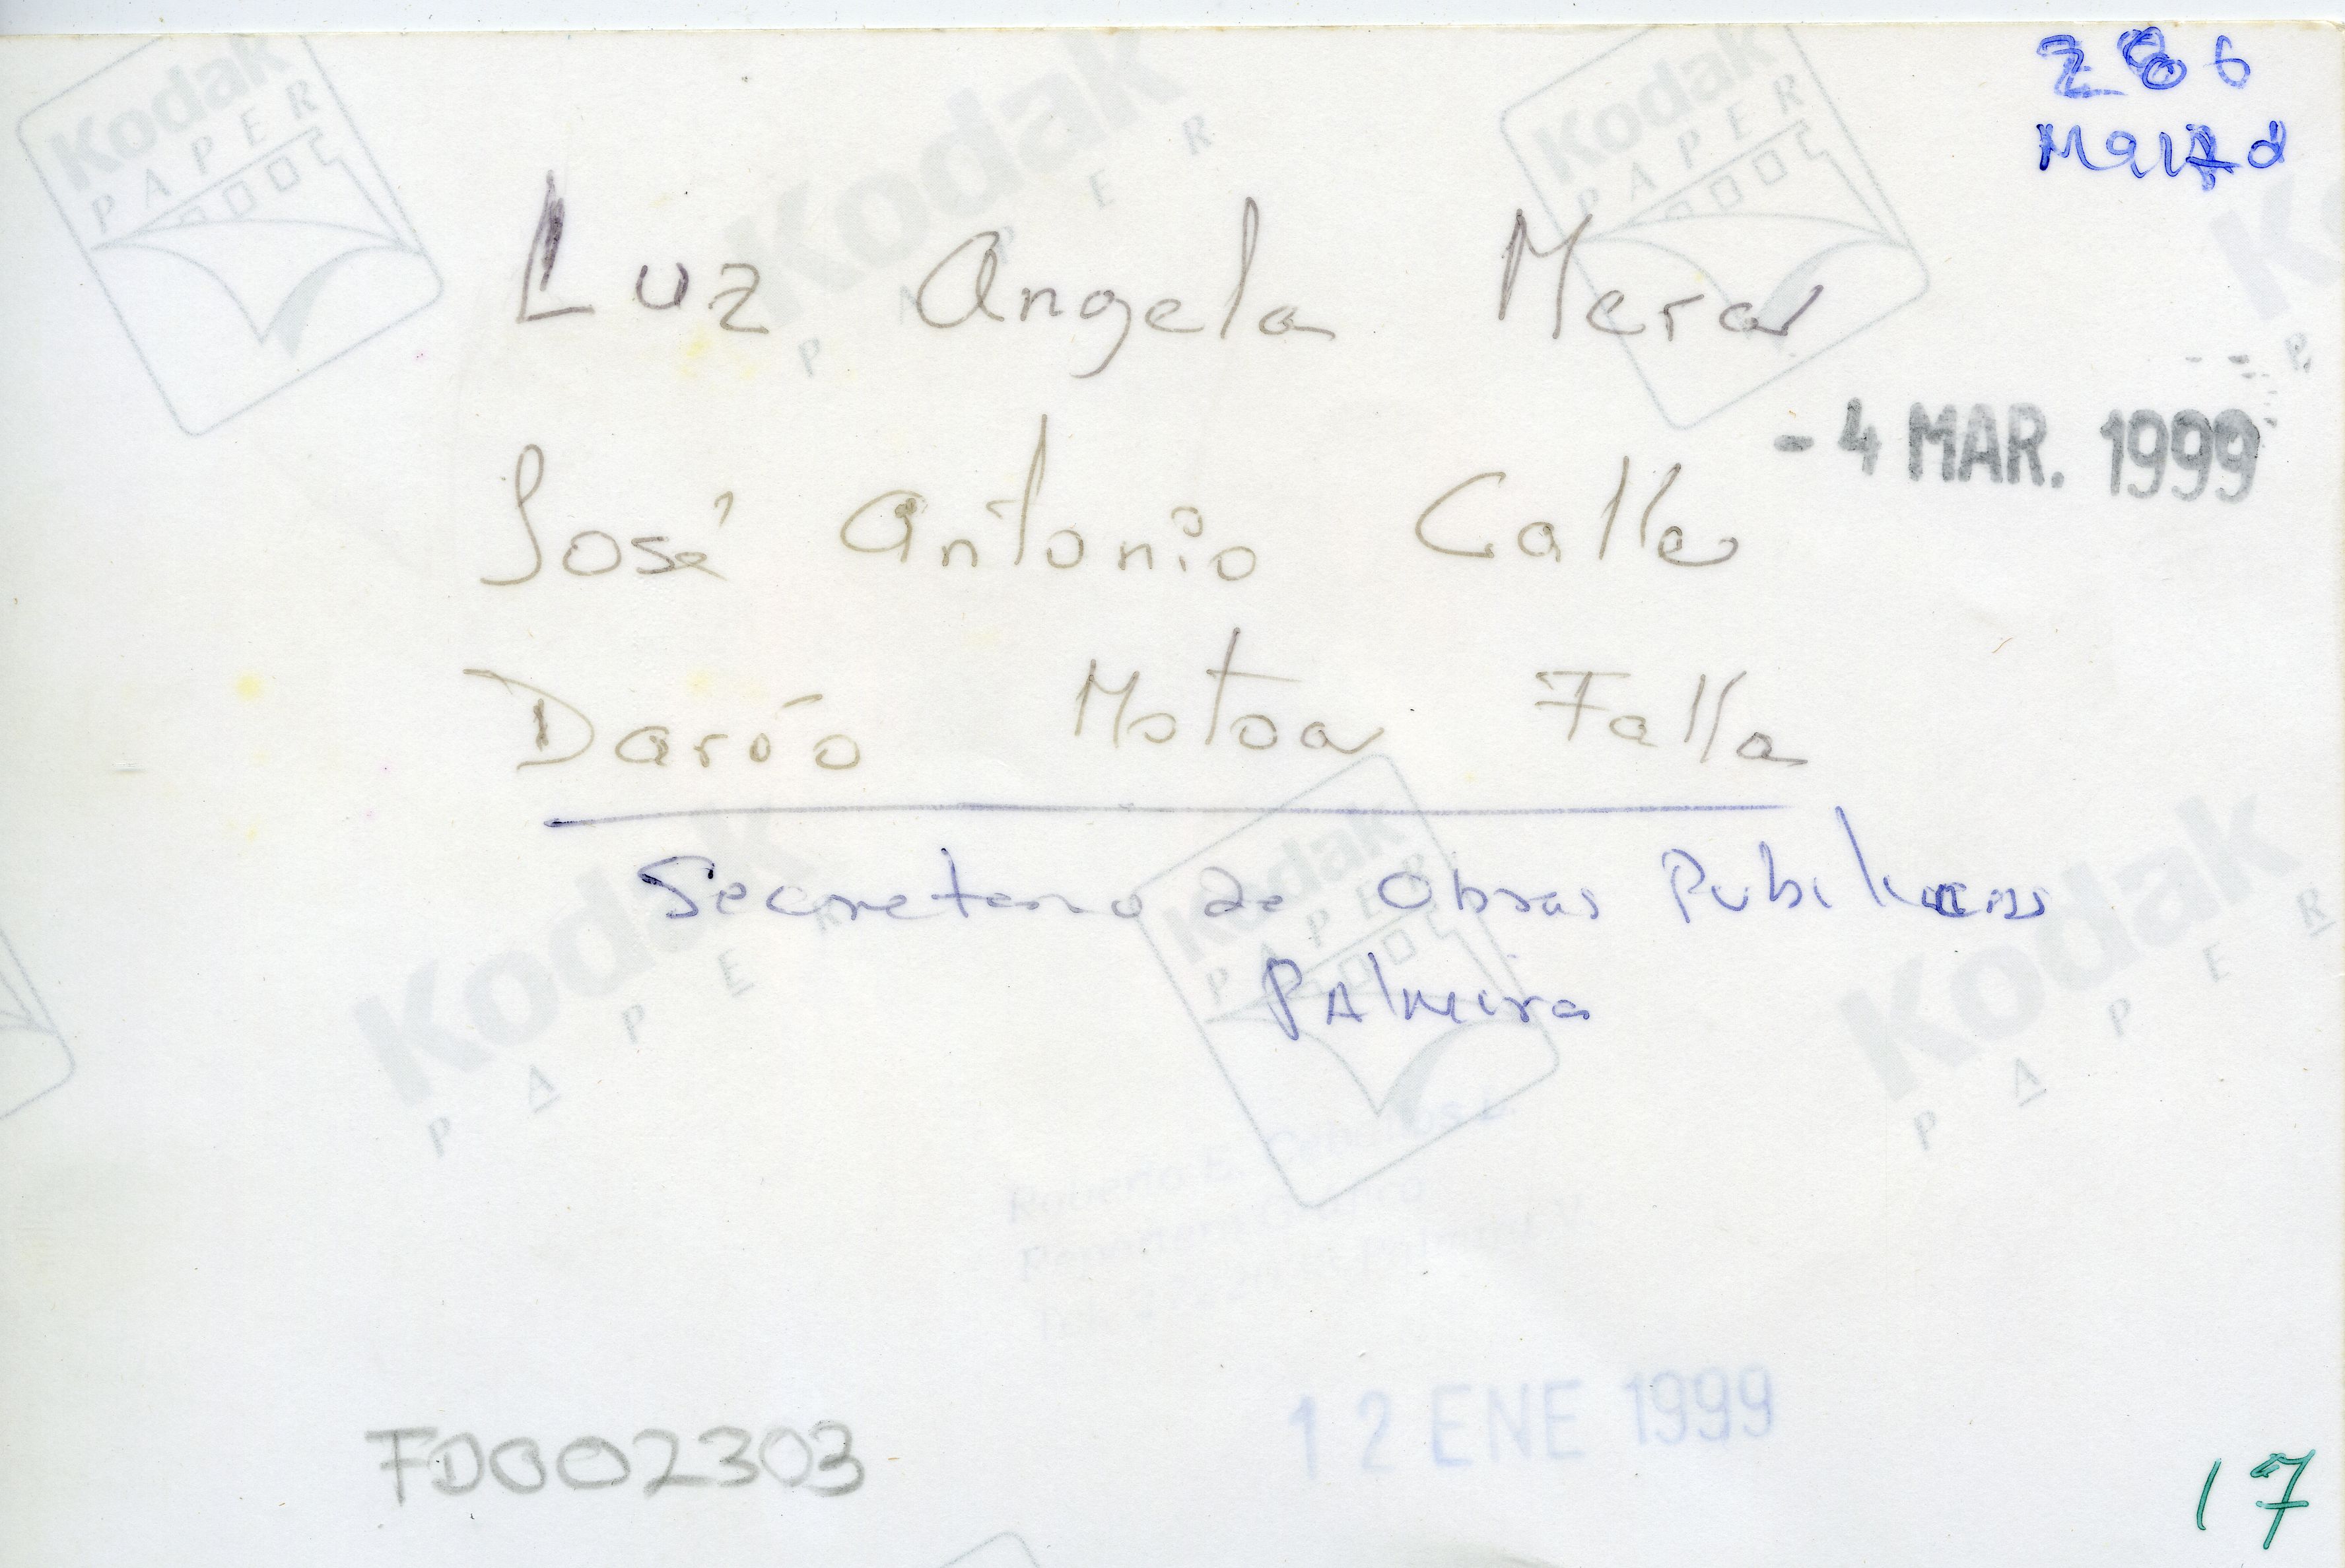 Marzo
Luz Angela Mera
- 4 MAR. 1999
José Antonio Calle
Darío Motoa Falla
Secretario de Obras Publicas
Palmira
12 ENE 1999
FD002303
17
Kodak
PAPER